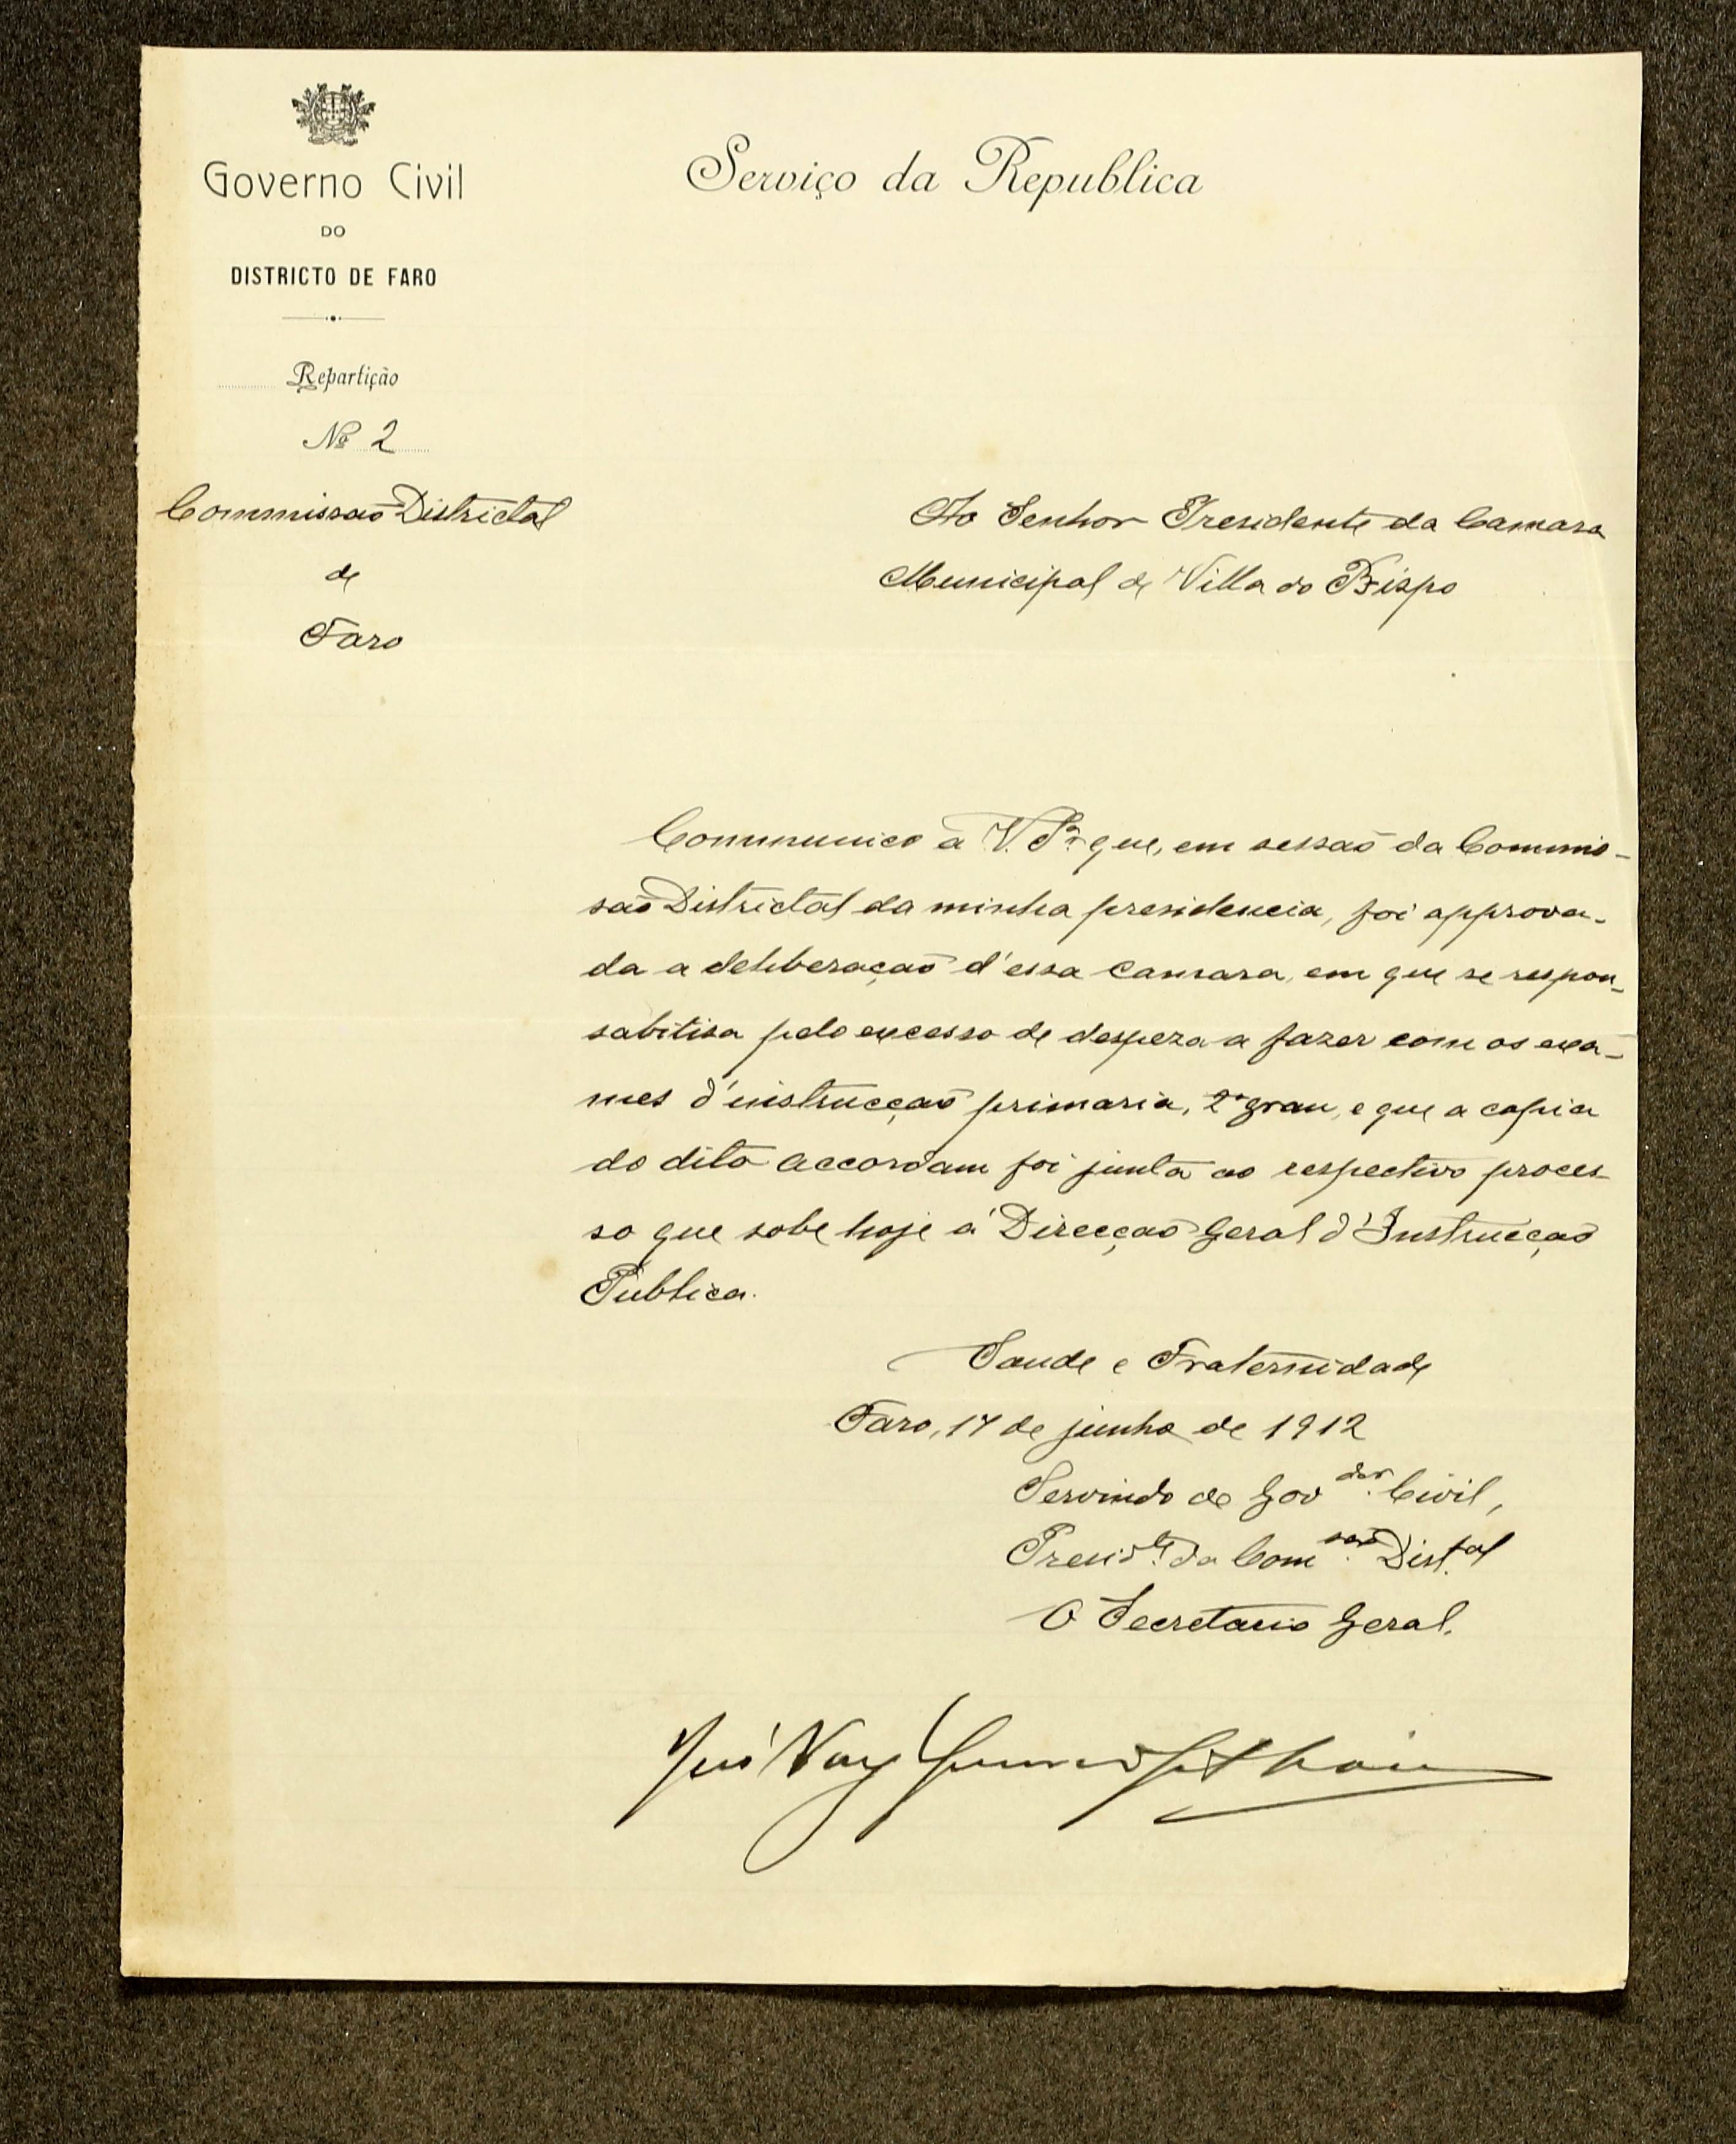 Governo Civil
DO
DISTRICTO DE FARO
Repartição
Nº 2
Commissão Districtal
de
Faro
Serviço da Republica
Ao Senhor Presidente da Camara
Municipal de Villa do Bispo
Communico a V. que, em sessão da Commis-
são Districtal da minha presidencia, foi approva-
da a deliberação d'essa Camara, em que se respon-
sabilisa pelo excesso de despeza a fazer com os exa-
mes d'instrucção primaria, 2º grau, e que a copia
do dito accordam foi junta ao respectivo proces-
so que sobe hoje á Direcção Geral d'Instrucção
Publica.
Saude e Fraternidade
Faro, 17 de junho de 1912
Servindo de Govdor. Civil,
Presidte. da Comssão. Distal.
O Secretario Geral.
José Vaz